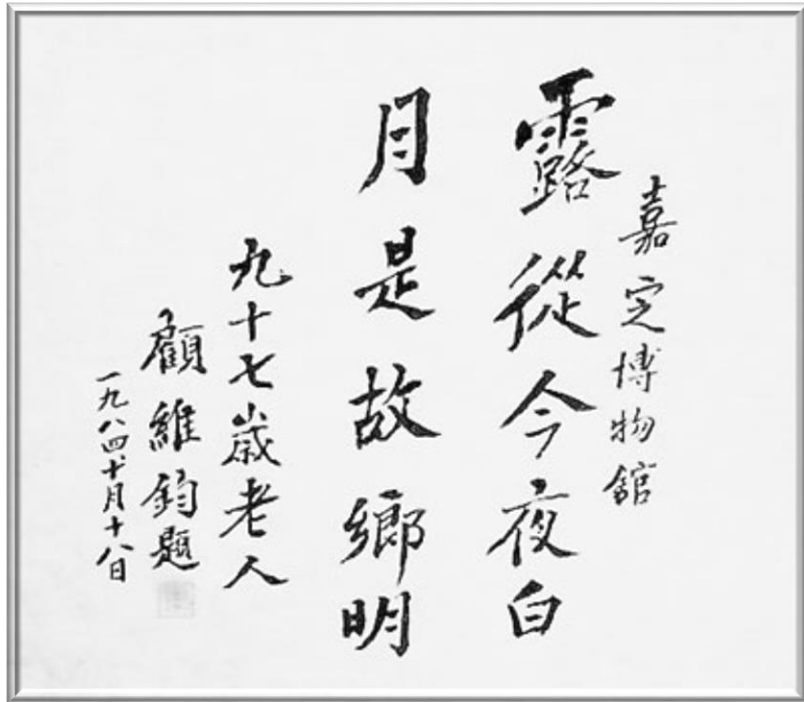 嘉定博物舘
露從今夜白
月是故鄉明
九十七歲老人
顧維鈞題
一九八四十月十八日